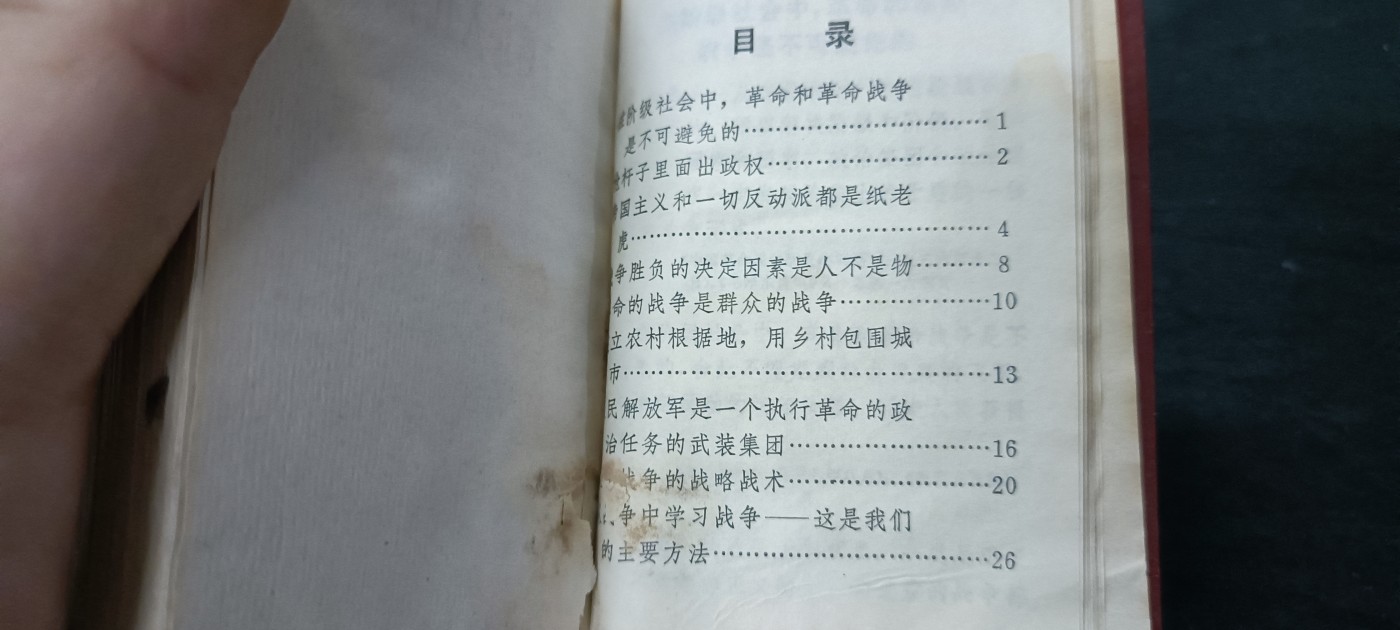 目 录
在阶级社会中，革命和革命战争
是不可避免的……………………………1
杆子里面出政权……………………………2
国主义和一切反动派都是纸老
虎……………………………………………4
争胜负的决定因素是人不是物………8
命的战争是群众的战争………………10
立农村根据地，用乡村包围城
市…………………………………………13
民解放军是一个执行革命的政
治任务的武装集团……………………16
战争的战略战术………………………20
争中学习战争——这是我们
的主要方法……………………………26